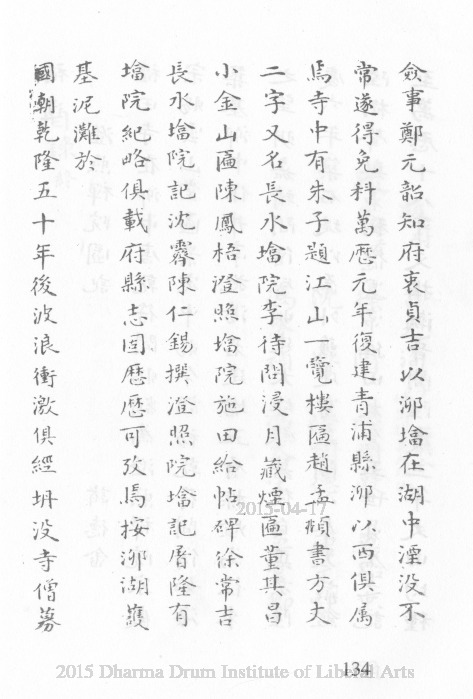 僉事鄭元韶知府衷貞吉以泖墖在湖中湮没不
常遂得免科萬歷元年復建青浦縣泖以西俱属
焉寺中有朱子題江山一覽樓匾趙孟頫書方丈
二字又名長水墖院李待問浸月藏煙匾董其昌
小金山匾陳鳳梧澄照墖院施田給帖碑徐常吉
長水墖院記沈霽陳仁錫撰澄照院墖記屠隆有
墖院紀略俱載府縣志固歷歷可攷焉按泖湖護
基泥灘於
國朝乾隆五十年後波浪衝激俱經坍没寺僧募
2015-04-17
134
2015 Dharma Drum Institute of Liberal Arts